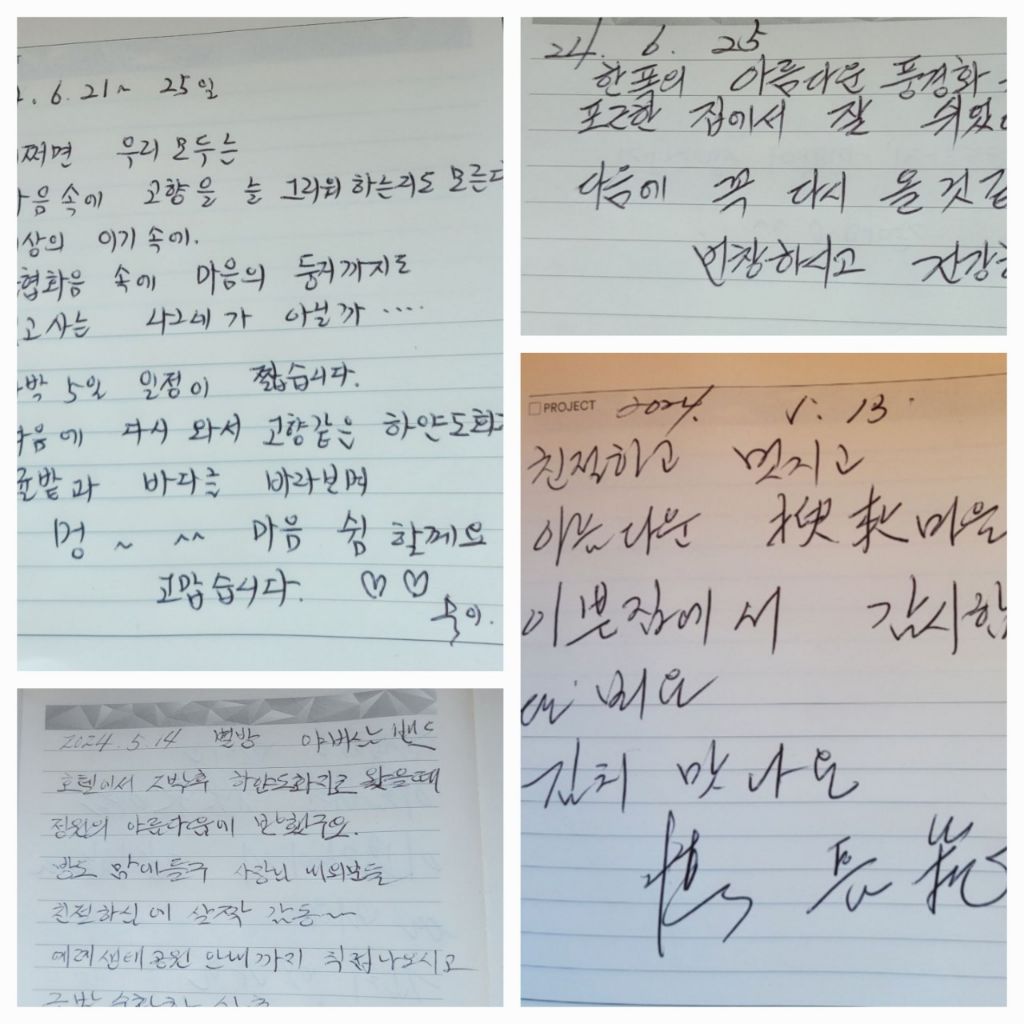 6.21~ 25일
쩌면 우리 모두는
음 속에 고향을 늘 그리워 하는지도 모른다
상의 이기 속에.
협화음 속에 마음의 둥지까지도
고 사는 나그네가 아닐까 ....
박 5일 일정이 짧습니다.
음에 다시 와서 고향같은 하얀도화
귤밭과 바다를 바라보며
멍 ~ ^^ 마음 쉼 할께요
고맙습니다. ♡♡
숙이.
24. 6. 25
한폭의 아름다운 풍경화
포근한 집에서 잘 쉬었
다음에 꼭 다시 올 것 같
번창하시고 건강하
□ PROJECT 2024. 5. 13.
친절하고 멋지고
아름다운 마을
이쁜집에서 감사한
김치 맛나요
2024. 5. 14
호텔에서 2박후 하얀도화지로 왔을때
정원의 아름다움에 반했구요.
방도 맘에들구 사장님 내외분들
친절하심에 살짝 감동~
예래생태공원 안내까지 직접나오시고